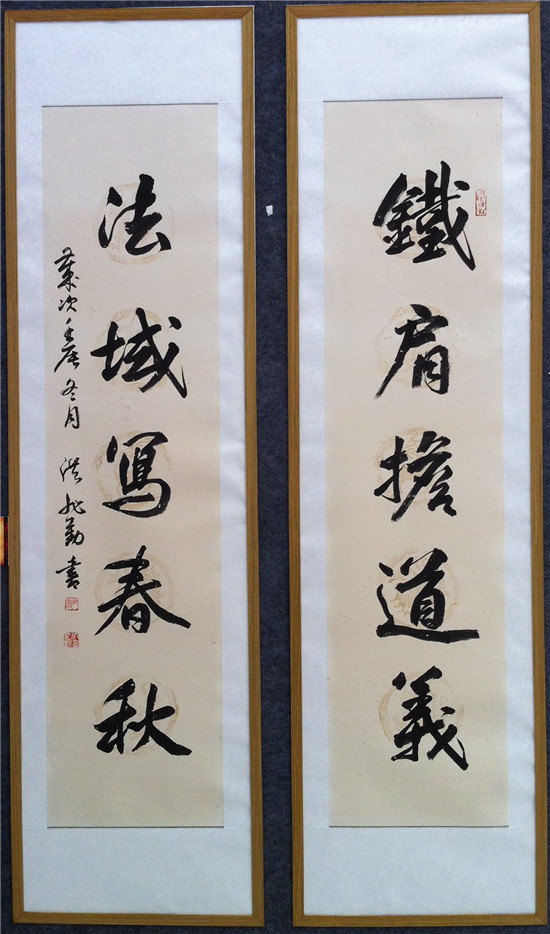 鐵肩擔道義
法域寫春秋
歲次壬辰冬月 洪兆勤書